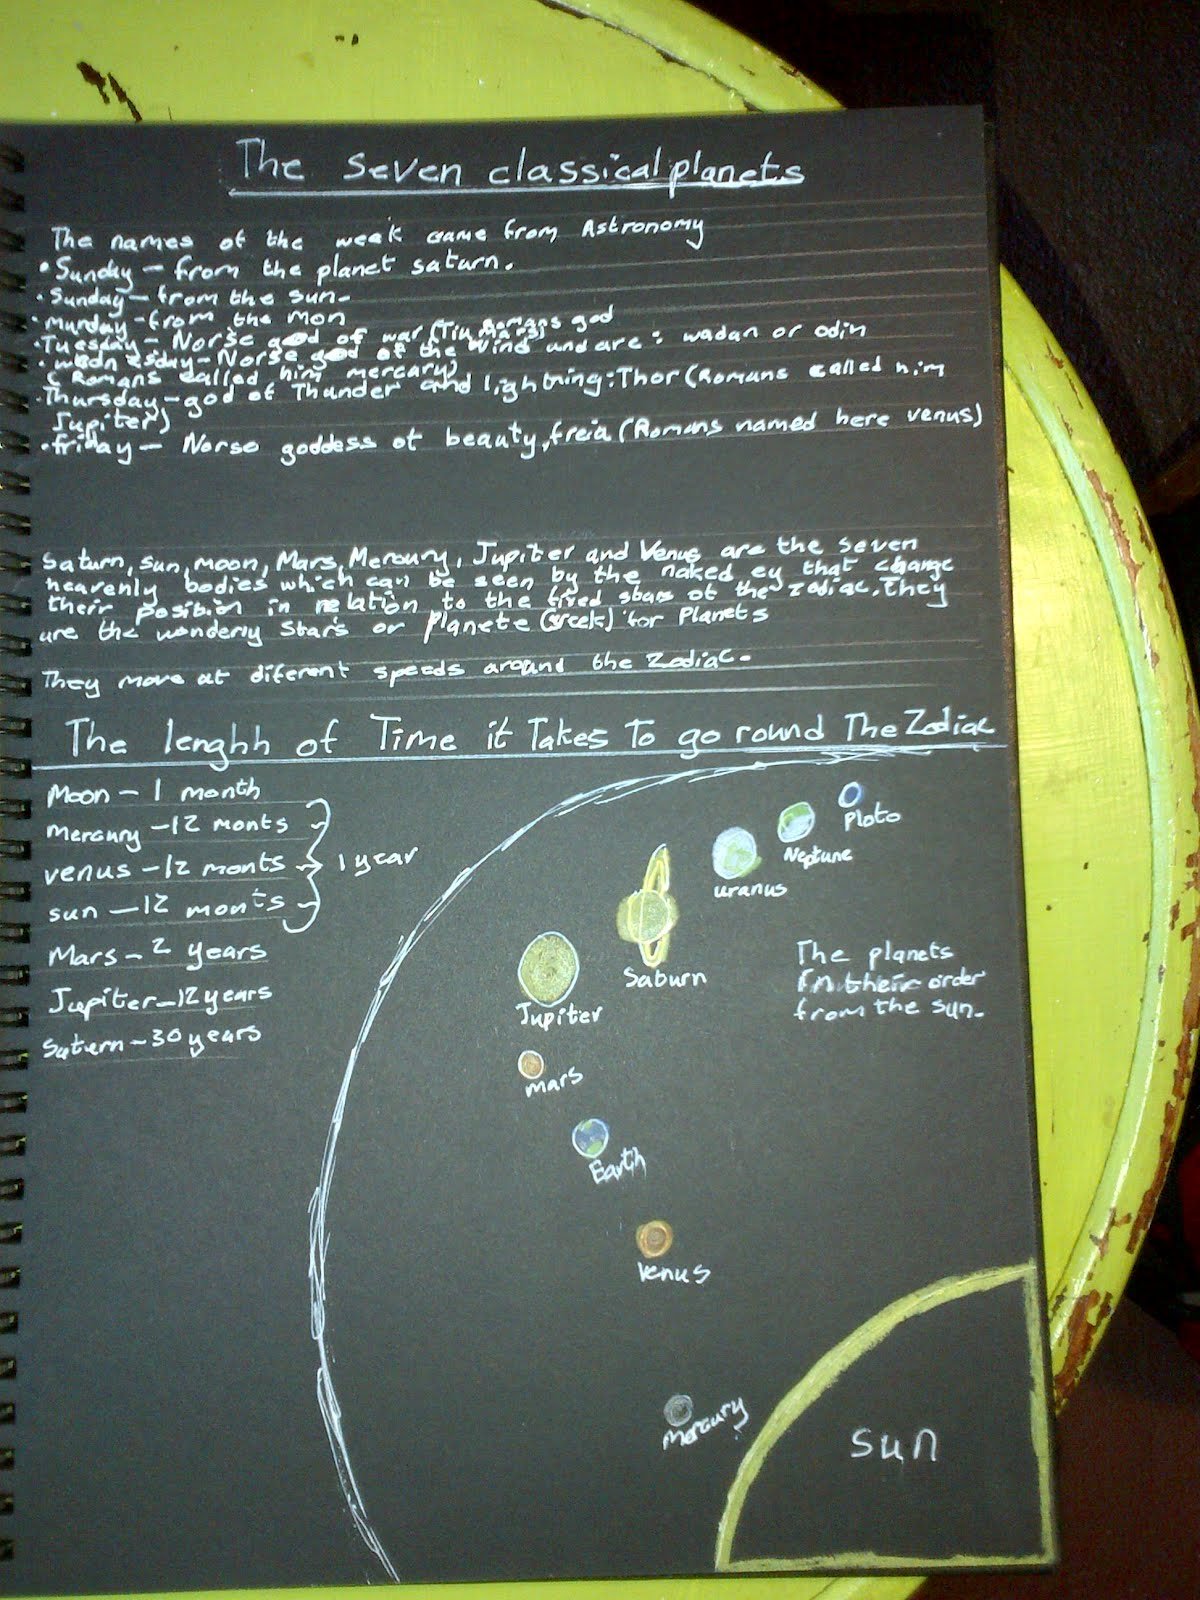 The seven classical planets
The names of the week came from Astronomy
• Sunday – from the planet saturn.
• Sunday – from the sun–
• Munday – from the mon
• Tuesday – Norse god of war (Romans god
• wednesday – Norse god of the wind and are: wadan or odin
( Romans called him mercury)
• Thursday – god of Thunder and lightning: Thor (Romans called him
Jupiter)
• friday – Norse goddess of beauty, freia (Romans named here venus)
Saturn, sun, moon, Mars, Mercury, Jupiter and Venus are the seven
heavenly bodies which can be seen by the naked ey that change
their position in relation to the fixed stars of the Zodiac. They
are the wonderly Stars or planete (Greek) for Planets
They move at diferent speeds around the Zodiac.
The lenghh of Time it Takes To go round The Zodiac
Moon – 1 month
mercury – 12 monts
venus – 12 monts
1 year
sun – 12 monts
Mars – 2 years
Jupiter – 12 years
Saturn – 30 years
Ploto
Neptune
uranus
Saturn
Jupiter
The planets
In their order
from the sun.
mars
Earth
Venus
Mercury
sun